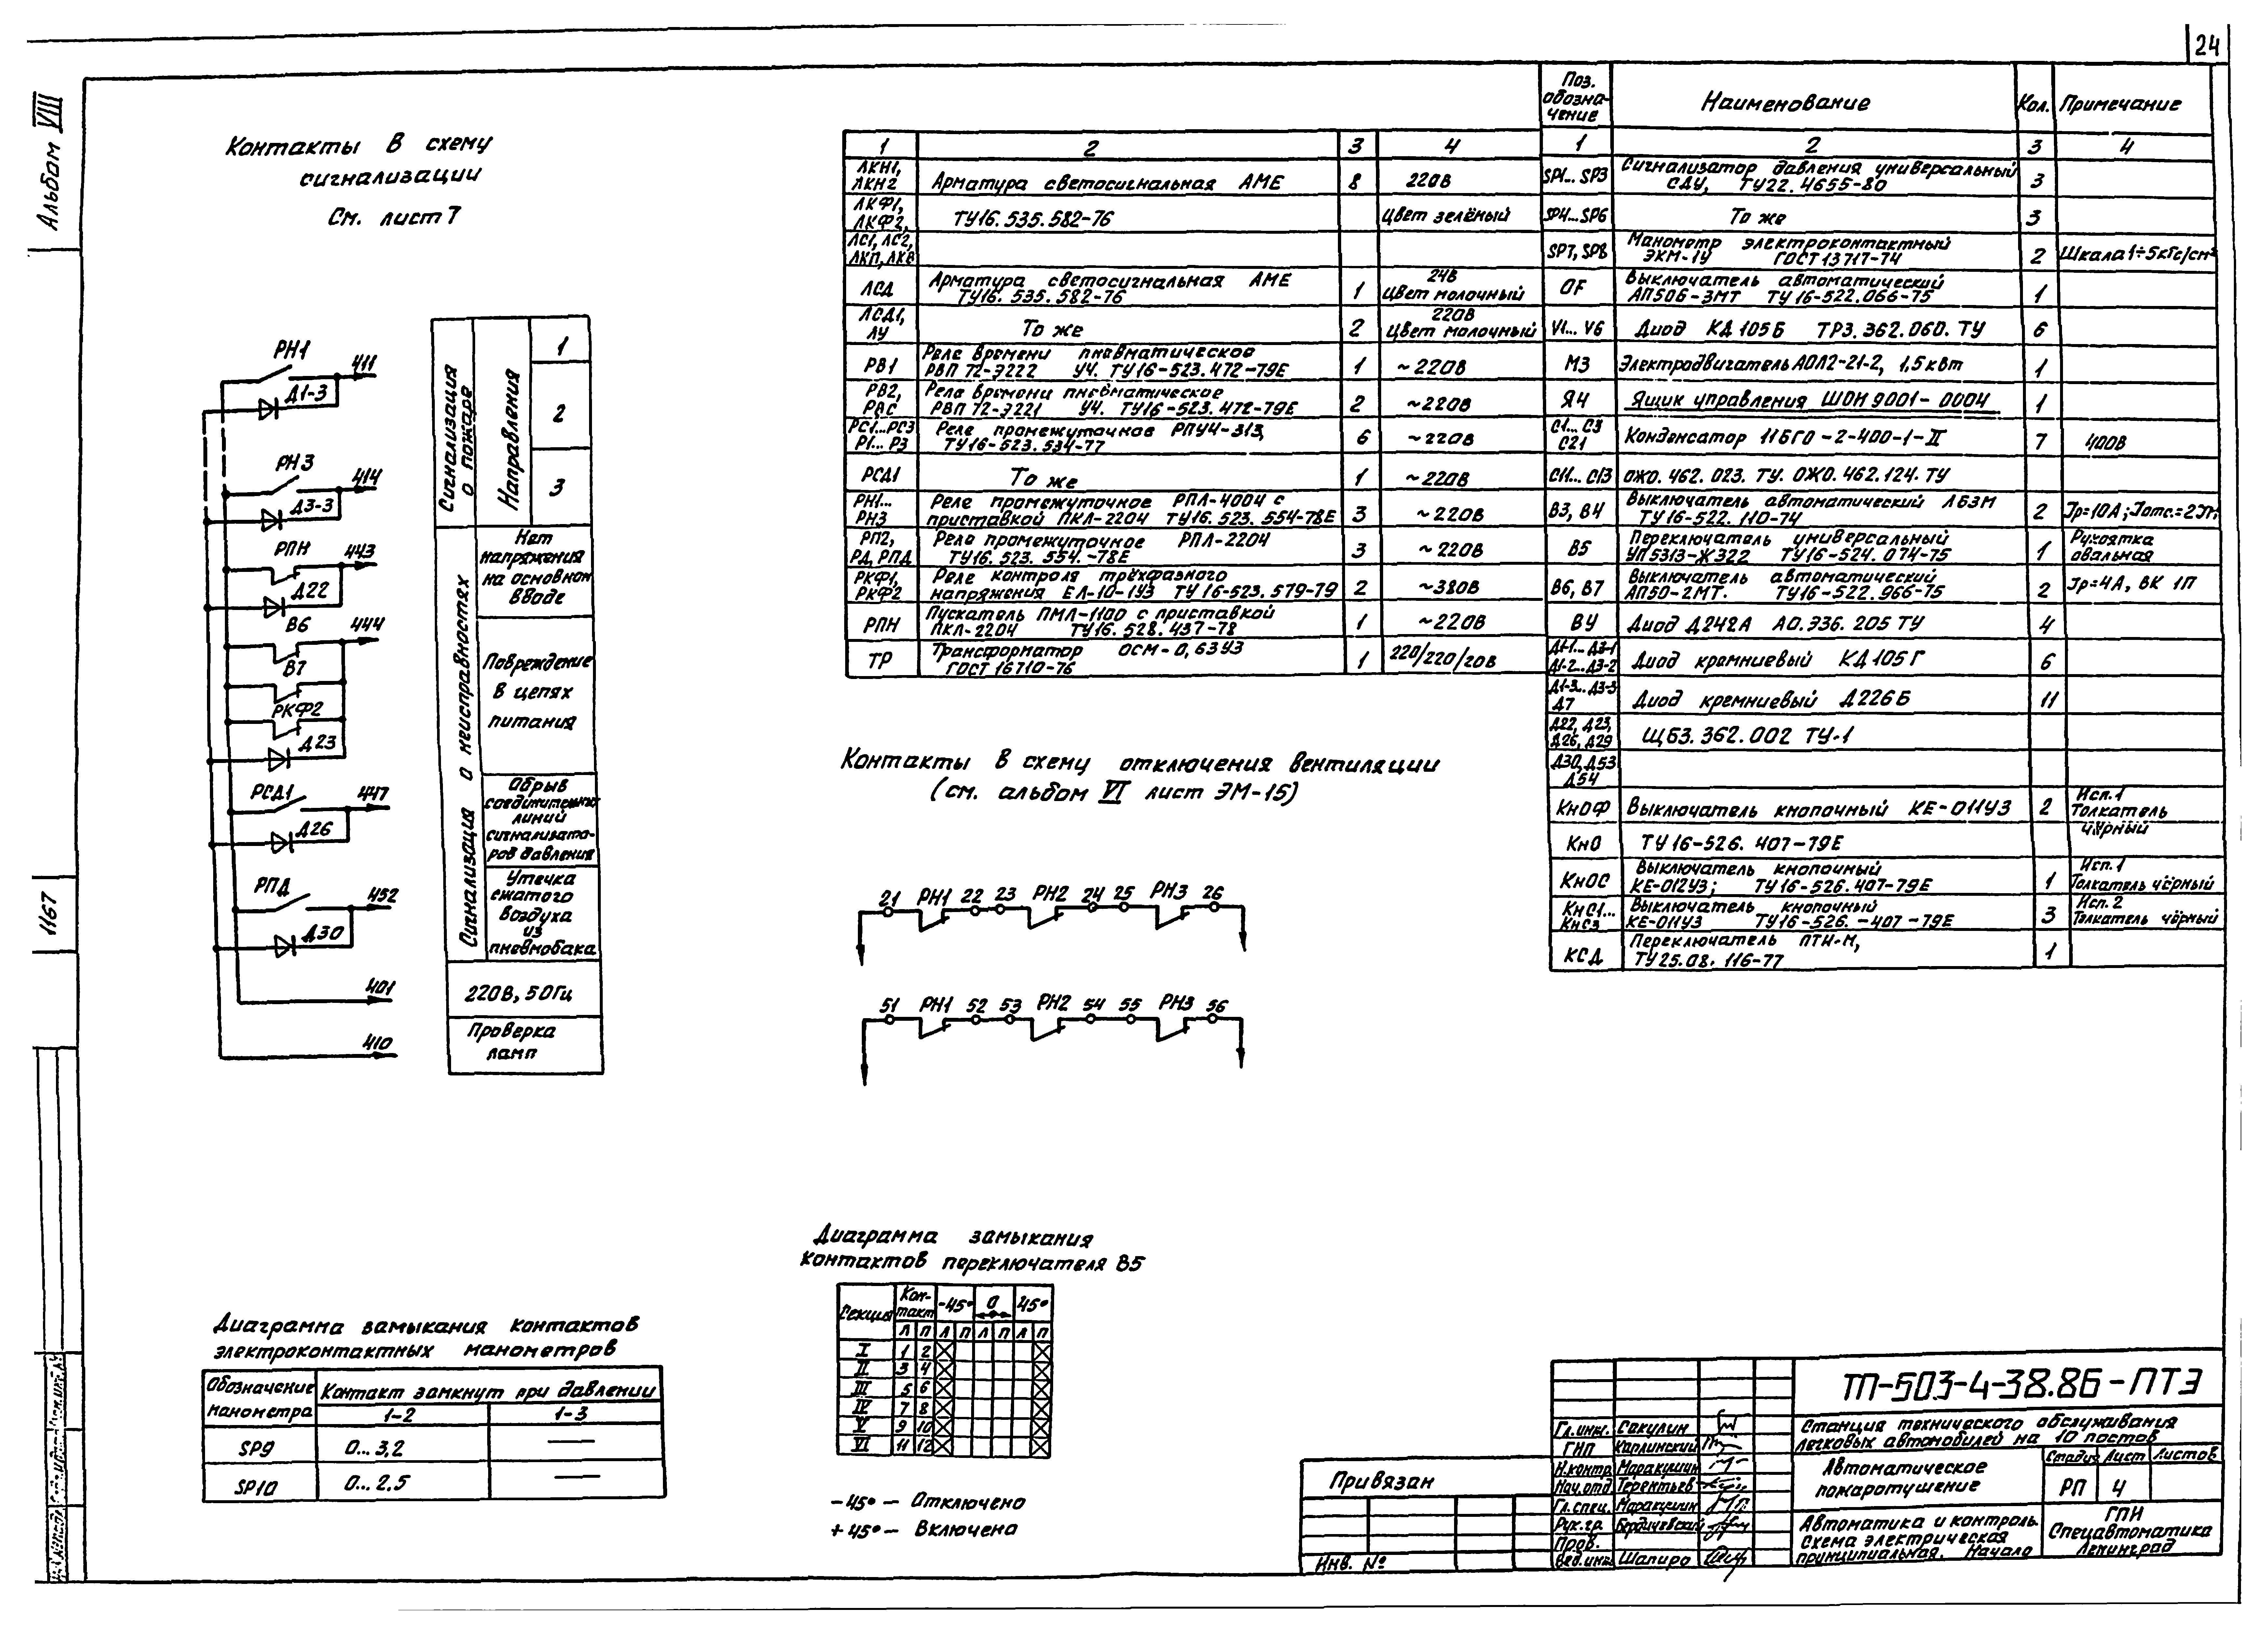 24
Альбом VIII
1167
Контакты в схему
сигнализации
См. лист 7
РН1
411
Д1-3
РН3
414
Д3-3
РПН
443
Д22
В6
444
В7
РКФ2
Д23
РСД1
447
Д26
РПД
452
Д30
401
410
Сигнализация о пожаре
Направления
1
2
3
Сигнализация о неисправностях
Нет
напряжения
на основном
вводе
Повреждение
в цепях
питания
Обрыв
соединительных
линий
сигнализато-
ров давления
Утечка
сжатого
воздуха
из
пневмобака
220В, 50Гц
Проверка
ламп
1 2 3 4
ЛКН1, ЛКН2 Арматура светосигнальная АМЕ 8 220В
ЛКФ1, ЛКФ2, ТУ16.535.582-76 Цвет зелёный
ЛС1, ЛС2, ЛКП, ЛКВ
ЛСД Арматура светосигнальная АМЕ ТУ16.535.582-76 1 24В Цвет молочный
ЛСД1, ЛУ То же 2 220В Цвет молочный
РВ1 Реле времени пневматическое РВП 72-3222 УЧ. ТУ16-523.472-79Е 1 ~220В
РВ2, РВС Реле времени пневматическое РВП 72-3221 УЧ. ТУ16-523.472-79Е 2 ~220В
РС1...РС3 Р1...Р3 Реле промежуточное РПУ4-313, ТУ16-523.534-77 6 ~220В
РСД1 То же 1 ~220В
РН1... РН3 Реле промежуточное РПЛ-4004 с приставкой ПКЛ-2204 ТУ16.523.554-78Е 3 ~220В
РП2, РД, РПД Реле промежуточное РПЛ-2204 ТУ16.523.554.-78Е 3 ~220В
РКФ1, РКФ2 Реле контроля трёхфазного напряжения ЕЛ-10-1У3 ТУ16-523.579-79 2 ~380В
РПН Пускатель ПМЛ-1100 с приставкой ПКЛ-2204 ТУ16.528.437-78 1 ~220В
ТР Трансформатор ОСМ-0,63У3 ГОСТ 16710-76 1 220/220/20В
Поз. обозна- чение Наименование Кол. Примечание
1 2 3 4
SP1...SP3 Сигнализатор давления универсальный СДУ, ТУ22.4655-80 3
SP4...SP6 То же 3
SP7, SP8 Манометр электроконтактный ЭКМ-1У ГОСТ 13717-74 2 Шкала 1÷5кгс/см²
QF Выключатель автоматический АП50Б-3МТ ТУ16-522.066-75 1
V1...V6 Диод КД105Б ТР3.362.060.ТУ 6
М3 Электродвигатель АОЛ2-21-2, 1,5кВт 1
Я4 Ящик управления ШОН 9001-0004 1
С1...С3 С21 Конденсатор 11БГО-2-400-1-II 7 400В
С11...С13 ОЖО.462.023.ТУ. ОЖО.462.124.ТУ
В3, В4 Выключатель автоматический АБ3М ТУ16-522.110-74 2 Jр=10А; Jотс.=2Jн
В5 Переключатель универсальный УП5313-Ж322 ТУ16-524.074-75 1 Рукоятка овальная
В6, В7 Выключатель автоматический АП50-2МТ. ТУ16-522.966-75 2 Jр=4А, ВК 1П
ВУ Диод Д242А АО.336.205 ТУ 4
Д1-1...Д3-1 Д1-2...Д3-2 Диод кремниевый КД105Г 6
Д1-3...Д3-3 Д7 Диод кремниевый Д226Б 11
Д22, Д23, Д26, Д29 ЩБ3.362.002 ТУ-1
Д30, Д53 Д54
КнОФ Выключатель кнопочный КЕ-011У3 2 Исп.1 Толкатель чёрный
КнО ТУ16-526.407-79Е
КнОС Выключатель кнопочный КЕ-012У3; ТУ16-526.407-79Е 1 Исп.1 Толкатель чёрный
КнС1... КнС3 Выключатель кнопочный КЕ-011У3 ТУ16-526.-407-79Е 3 Исп.2 Толкатель чёрный
КСД Переключатель ПТИ-М, ТУ25.08.116-77 1
Контакты в схему отключения вентиляции
(см. альбом VI лист ЭМ-15)
21 РН1 22 23 РН2 24 25 РН3 26
51 РН1 52 53 РН2 54 55 РН3 56
Диаграмма замыкания
контактов переключателя В5
Секция Кон- такт -45° 0 45°
Л П Л П Л П Л П
I 1 2
II 3 4
III 5 6
IV 7 8
V 9 10
VI 11 12
-45° - Отключено
+45° - Включено
Диаграмма замыкания контактов
электроконтактных манометров
Обозначение манометра Контакт замкнут при давлении
1-2 1-3
SP9 0...3,2 —
SP10 0...2,5 —
Привязан
Инв. №
ТП-503-4-38.86-ПТЭ
Гл.инж. Сакулин
ГИП Карлинский
Н.контр. Маракушин
Нач.отд Терентьев
Гл.спец. Маракушин
Рук.гр. Бердичевский
Пров.
Вед.инж Шапиро
Станция технического обслуживания
легковых автомобилей на 10 постов
Автоматическое
пожаротушение
Стадия Лист Листов
РП 4
Автоматика и контроль.
Схема электрическая
принципиальная. Начало
ГПИ
Спецавтоматика
Ленинград